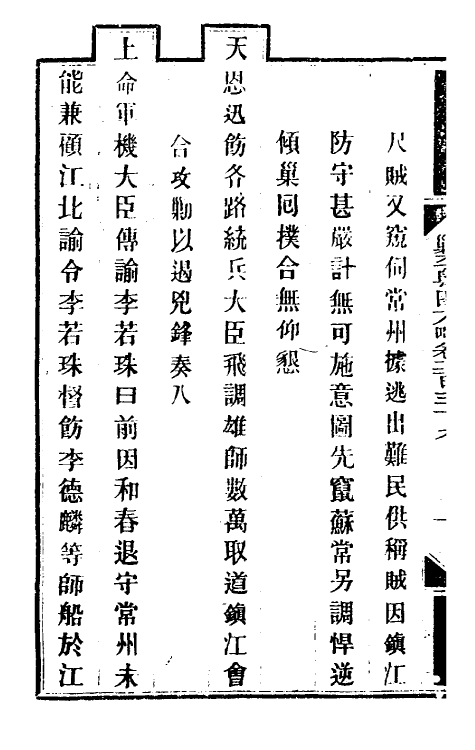 尺賊又窺伺常州據逃出難民供稱賊因鎭江
防守甚嚴計無可施意圖先竄蘇常另調悍逆
傾巢同撲合無仰懇
天恩迅飭各路統兵大臣飛調雄師數萬取道鎭江會
合攻勦以遏兇鋒奏入
上命軍機大臣傳諭李若珠曰前因和春退守常州未
能兼顧江北諭令李若珠督飭李德麟等師船於江